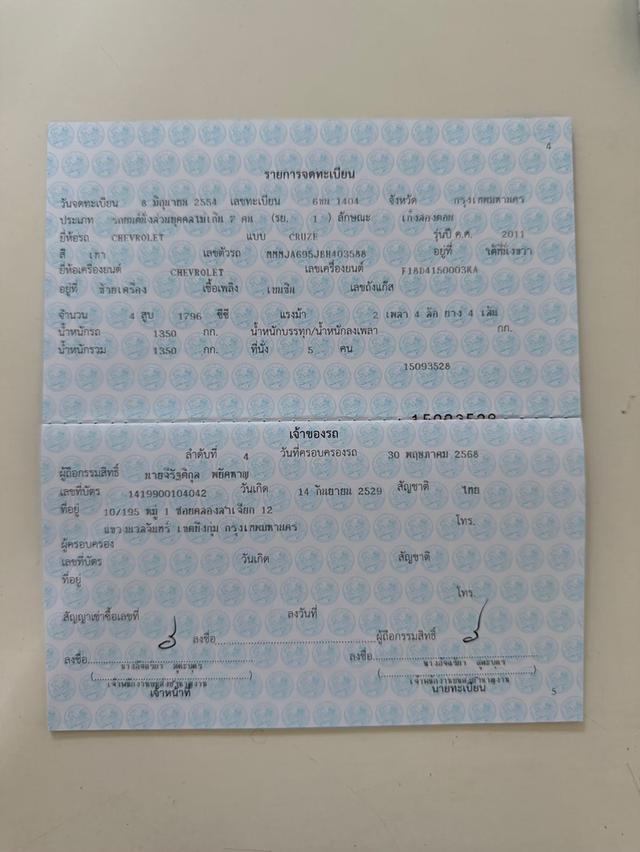 4
รายการจดทะเบียน
วันจดทะเบียน 8 มิถุนายน 2554 เลขทะเบียน 1404 จังหวัด กรุงเทพมหานคร
ประเภท รถยนต์นั่งส่วนบุคคลไม่เกิน 7 คน (รย. 1 ) ลักษณะ เก๋งสองตอน
ยี่ห้อรถ CHEVROLET แบบ CRUZE รุ่นปี ค.ศ. 2011
สี เทา เลขตัวรถ MMMJA695JBH403588 อยู่ที่
ยี่ห้อเครื่องยนต์ CHEVROLET เลขเครื่องยนต์ F18D4150003KA
อยู่ที่ ซ้ายเครื่อง เชื้อเพลิง เบนซิน เลขถังแก๊ส
จำนวน 4 สูบ 1796 ซีซี แรงม้า 2 เพลา 4 ล้อ ยาง 4 เส้น
น้ำหนักรถ 1350 กก. น้ำหนักบรรทุก/น้ำหนักลงเพลา กก.
น้ำหนักรวม 1350 กก. ที่นั่ง 5 คน
15093528
15093528
เจ้าของรถ
ลำดับที่ 4 วันที่ครอบครองรถ 30 พฤษภาคม 2568
ผู้ถือกรรมสิทธิ์ พยัคหาญ
เลขที่บัตร 1419900104042 วันเกิด 14 กันยายน 2529 สัญชาติ ไทย
ที่อยู่ 10/195 หมู่ 1 ซอยคลองลำเจียก 12
แขวงนวลจันทร์ เขตบึงกุ่ม กรุงเทพมหานคร โทร.
ผู้ครอบครอง
เลขที่บัตร วันเกิด สัญชาติ
ที่อยู่
โทร.
สัญญาเช่าซื้อเลขที่ ลงวันที่
ลงชื่อ ผู้ถือกรรมสิทธิ์
ลงชื่อ ลงชื่อ
เจ้าหน้าที่ นายทะเบียน
5